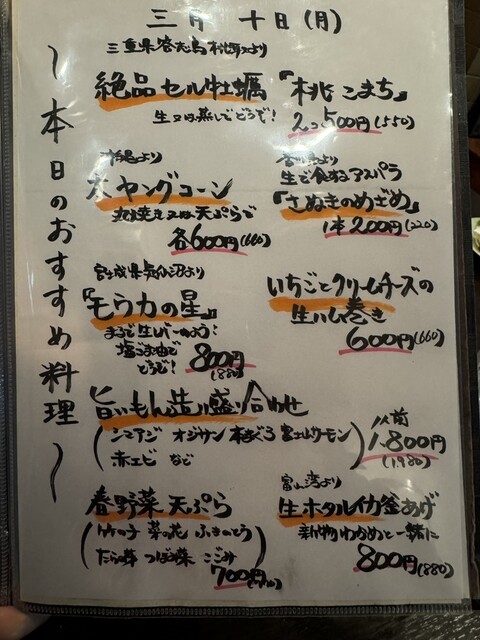 三月 十日(月)
〜本日のおすすめ料理〜
三重県答志島桃取より
絶品セル牡蠣「桃こまち」
生又は蒸しでどうぞ!
2コ500円(550)
沖縄より
太ヤングコーン
丸焼き又は天ぷらで
各600円(660)
香川県より
生で食するアスパラ
「さぬきのめざめ」
1本200円(220)
宮城県気仙沼より
「モウカの星」
まるで生レバーのよう!
塩ごま油で
どうぞ!
800円
(880)
いちごとクリームチーズの
生ハム巻き
600円(660)
旨いもん造り盛り合わせ
(シマアジ オジサン 本まぐろ 富士山サーモン
赤エビ など)
1人前
1,800円
(1,980)
春野菜天ぷら
(竹の子 菜の花 ふきのとう
たらの芽 つぼみ菜 こごみ)
700円(770)
富山湾より
生ホタルイカ釜あげ
新物わかめと一緒に
800円(880)